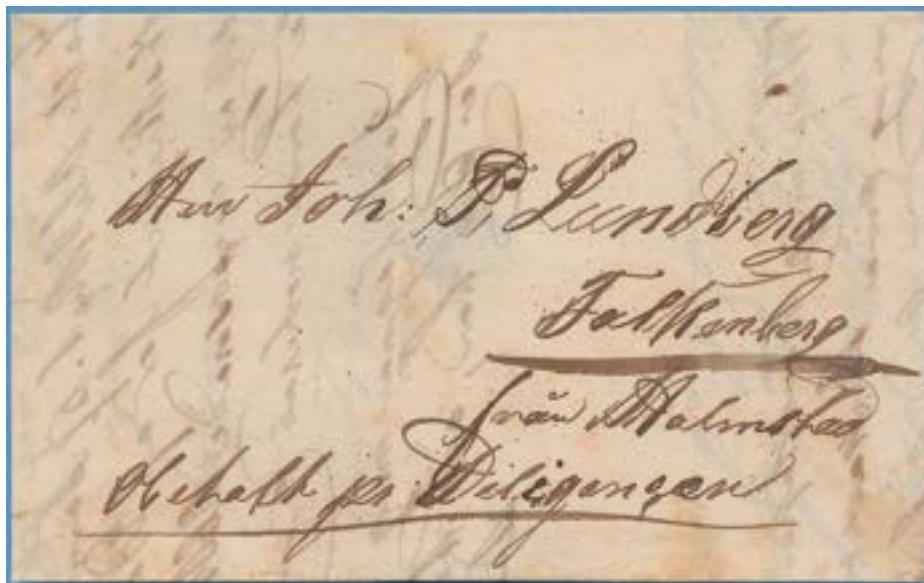 Herr Joh: P. Lundberg
Falkenberg
från Halmstad
Obetalt pr Diligencen